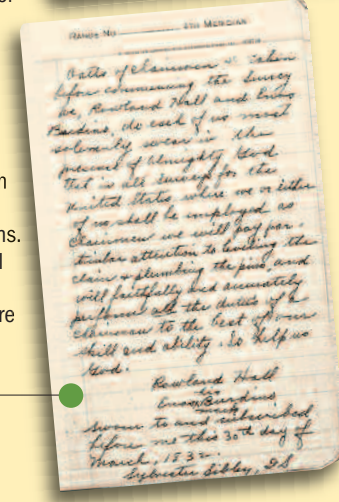 RANGE NO. 4TH MERIDIAN
Oaths of Chainmen as taken
before commencing the Survey
we, Rowland Hall and Enos
Burdins, do each of us most
solemnly swear in the
presence of Almighty God
that in all surveys for the
United States where we or either
of us shall be employed as
Chainmen we will pay par-
ticular attention to leveling the
chain & plumbing the pins, and
will faithfully and accurately
perform all the duties of a
chainman to the best of our
skill and ability. So help us
God.
Rowland Hall
his
Enos Burdins
mark
Sworn to and subscribed
before me this 30th day of
March, 1832.
Sylvester Sibley, D.S.
ns.
re